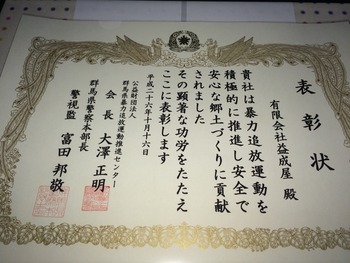 表彰状
有限会社益成屋 殿
貴社は暴力追放運動を
積極的に推進し安全で
安心な郷土づくりに貢献
されました
その顕著な功労をたたえ
ここに表彰します
平成二十六年十月十六日
公益財団法人
群馬県暴力追放運動推進センター
会長 大澤正明
群馬県警察本部長
警視監 富田邦敬